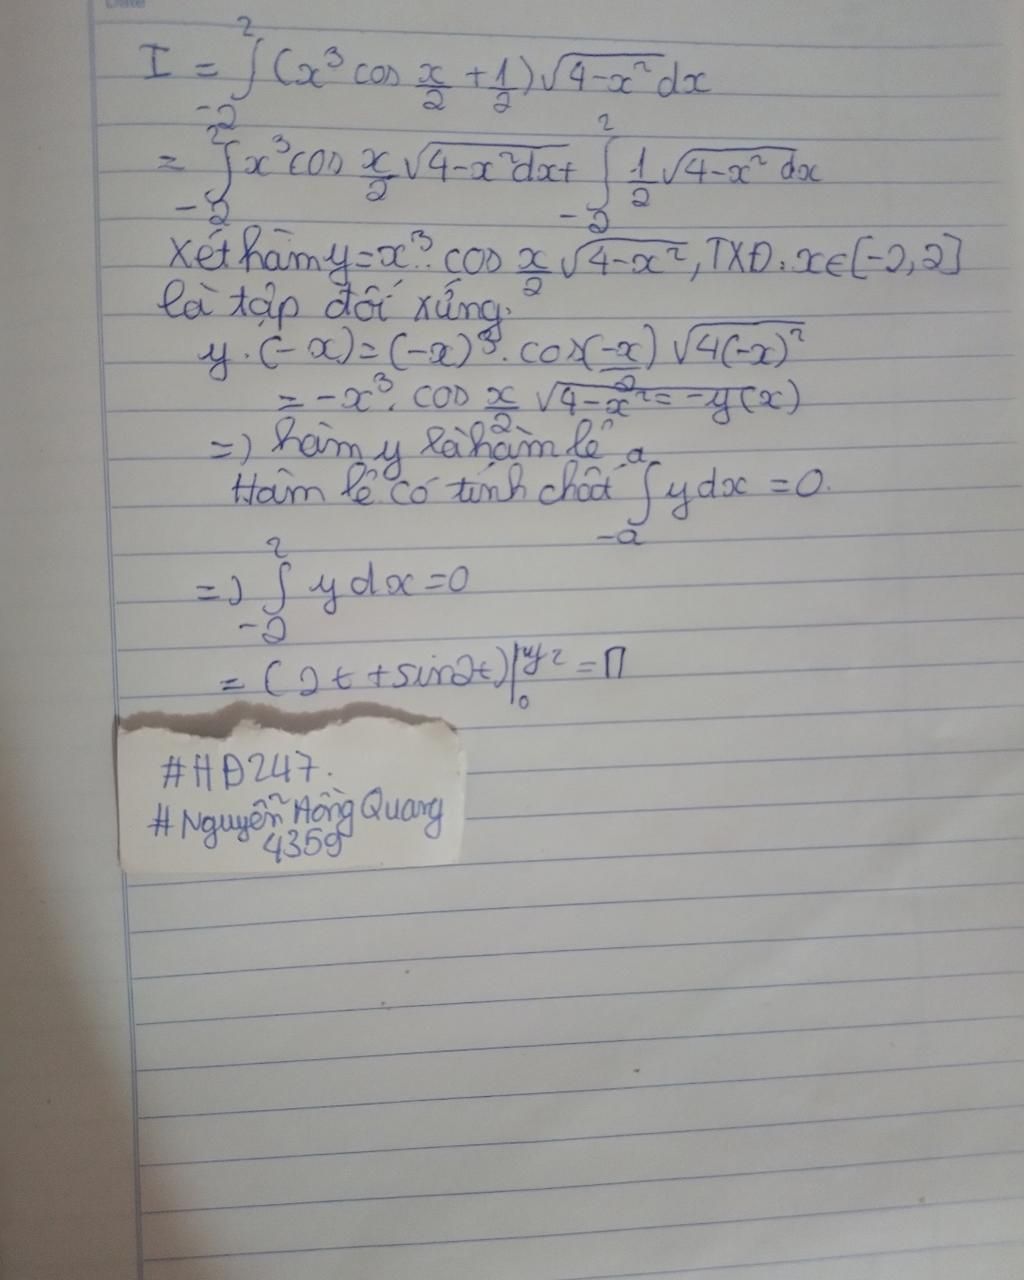 Date
I = ∫_{-2}^{2} (x³ cos x/2 + 1/2) √(4-x²) dx
= ∫_{-2}^{2} x³ cos x/2 √(4-x² dx) + ∫_{-2}^{2} 1/2 √(4-x²) dx
Xét hàm y = x³. cos x/2 √(4-x²), TXĐ: x∈[-2,2]
là tập đối xứng.
y.(-x) = (-x)³. cos(-x)/2 √(4(-x)²)
= -x³. cos x/2 √(4-x²) = -y(x)
=) hàm y là hàm lẻ
Hàm lẻ có tính chất ∫_{-a}^{a} y dx = 0.
=) ∫_{-2}^{2} y dx = 0
= (2t + sin2t)|_{0} = π
#HĐ247.
#Nguyễn Hồng Quang
4359